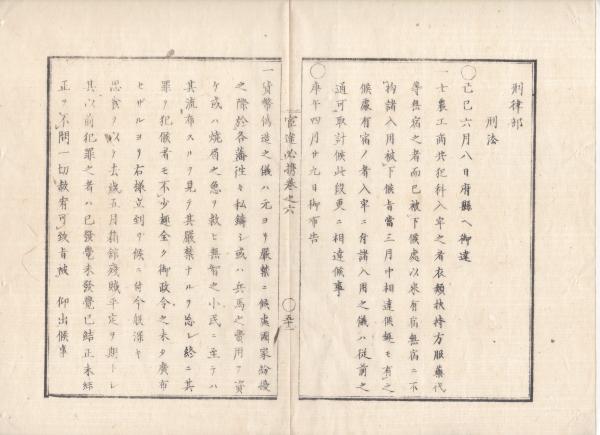 刑律部
刑法
○己巳六月八日府縣ヘ御達
一士農工商共犯科入牢之者衣類扶持方服藥代
等無宿之者而已被下候處以来有宿無宿ニ不
拘諸入用被下候旨當三月中相達候趣モ有之
候處有宿ノ者入牢ニ付諸入用之儀ハ従前之
通可取計候此段更ニ相達候事
○庚午四月廿九日御布告
官達必携巻之六
一貨幣偽造之儀ハ元ヨリ厳禁ニ候處國家紛擾
之際於各藩往々私鋳シ或ハ兵馬之費用ヲ資
ケ或ハ焼眉之急ヲ救ヒ無智之小民ニ至テハ
其流布スルヲ見テ其厳禁ナルヲ忘レ終ニ其
罪ヲ犯候者モ不少趣全ク御政令之未タ廣布
セザルヨリ右様立到リ候ニ付今般深キ
思食ヲ以テ去歳五月箱館残賊平定ヲ期トシ
其以前犯罪之者ハ已發覺未發覺已結正未結
正ヲ不問一切赦宥可致旨被 仰出候事